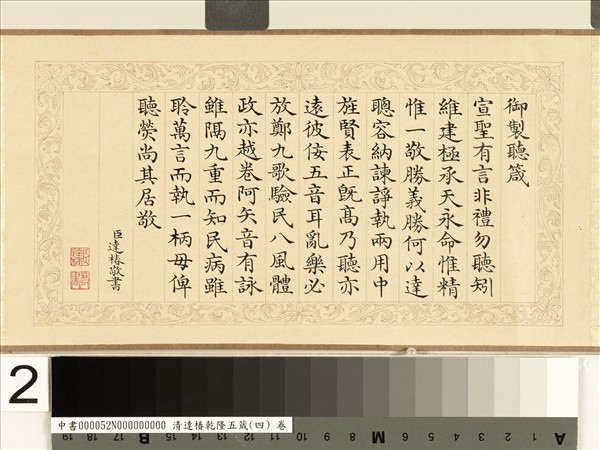 御製聽箴
宣聖有言非禮勿聽矧
維建極承天永命惟精
惟一敬勝義勝何以達
聰容納諫諍執兩用中
旌賢表正旣髙乃聽亦
遠彼佞五音耳亂樂必
放鄭九歌驗民八風體
政亦越卷阿矢音有詠
雖隔九重而知民病雖
聆萬言而執一柄毋俾
聽熒尚其居敬
臣達椿敬書
2
中書000052N000000000 清達椿乾隆五箴(四) 卷